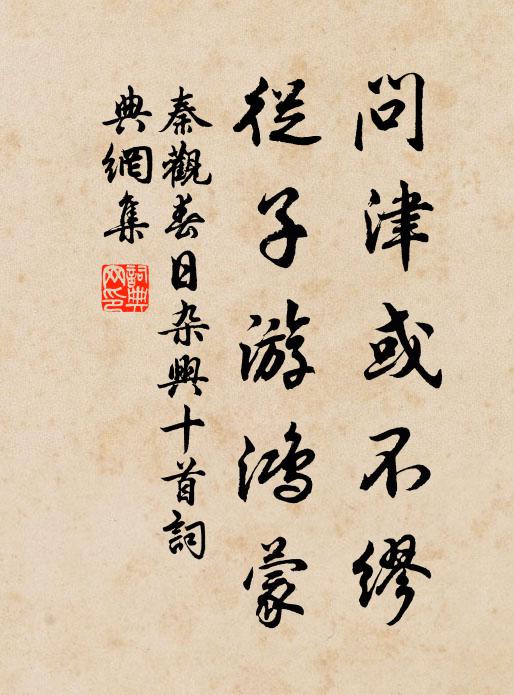 問津或不繆
從子游鴻蒙
秦觀春日杂興十首詞
典網集
詞典網印